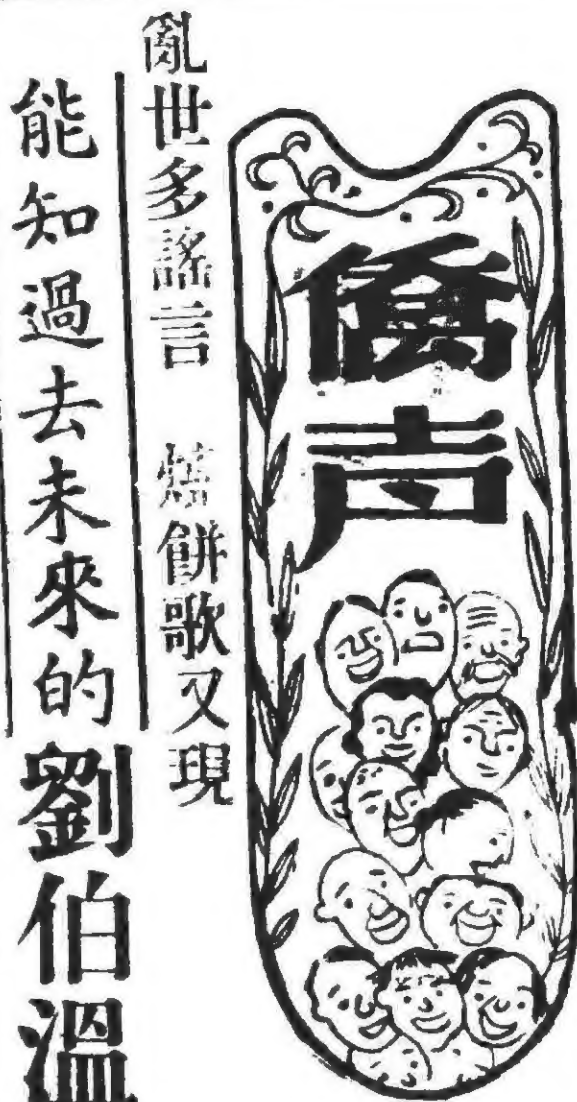 僑声
亂世多謠言 燒餅歌又現
能知過去未來的劉伯溫